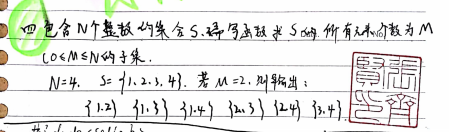 四 包含N个整数的集合S.编写函数求S的所有元素个数为M
(0≤M≤N的子集.
N=4. S={1.2.3.4}. 若M=2.则输出:
{1.2} {1.3} {1.4} {2.3} {2.4} {3.4}.